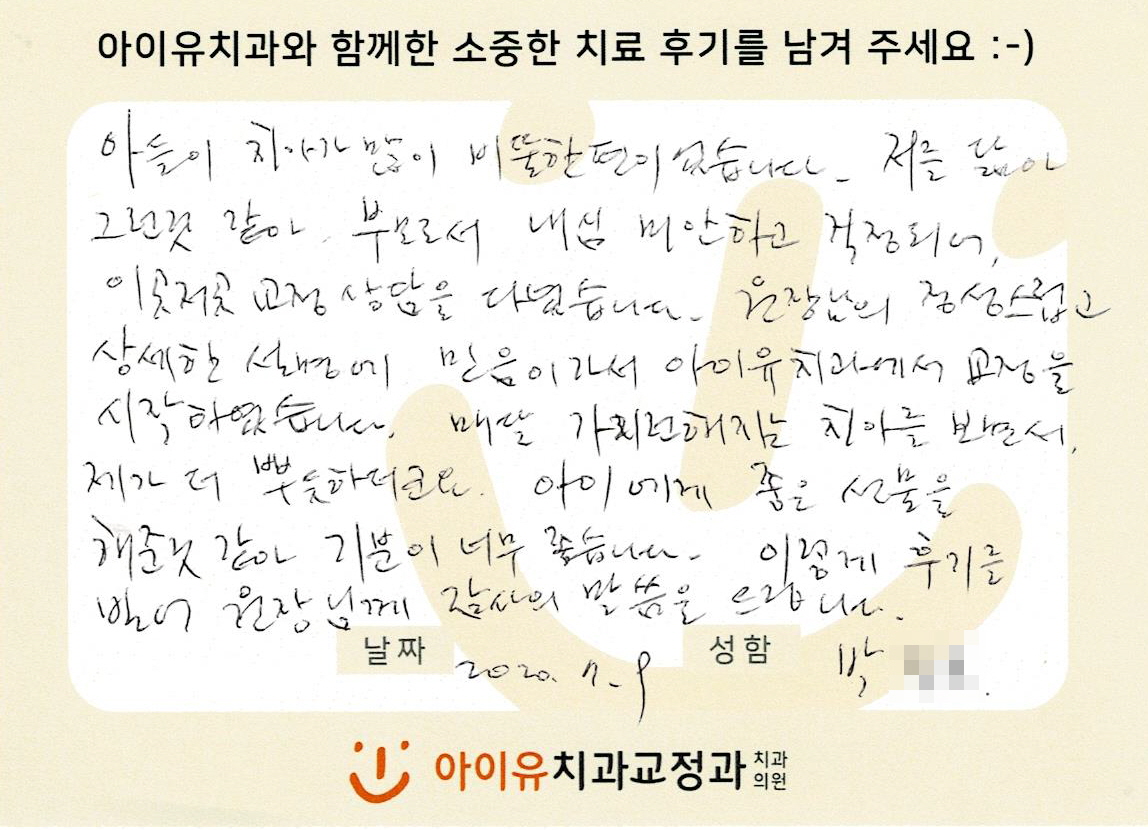 아이유치과와 함께한 소중한 치료 후기를 남겨 주세요 :-)
아들이 치아가 많이 비뚤한편이었습니다. 저를 닮아
그런것 같아. 부모로서 내심 미안하고 걱정되어,
이곳저곳 교정 상담을 다녔습니다. 원장님의 정성스럽고
상세한 설명에 믿음이가서 아이유치과에서 교정을
시작하였습니다. 매달 가지런해지는 치아를 보면서,
제가 더 뿌듯하더군요. 아이에게 좋은 선물을
해준것 같아 기분이 너무 좋습니다. 이렇게 후기를
빌어 원장님께 감사의 말씀을 드립니다.
날짜 2020. 7. 9 성함 박
아이유치과교정과 치과의원